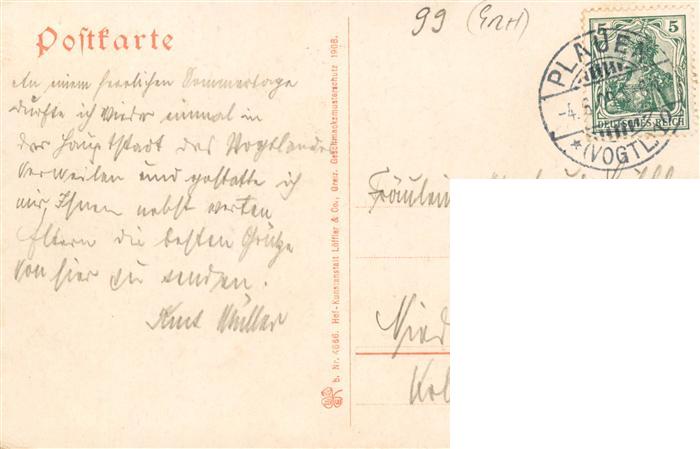 Postkarte
An einem herrlichen Sommertage
durfte ich wieder einmal in
der Hauptstadt des Vogtlandes
verweilen und gestatte ich
mir, Ihnen nebst werten
Eltern die besten Grüße
von hier zu senden.
Kurt Müller
b. Nr. 4666. Hof-Kunstanstalt Löffler & Co., Greiz. Geschmacksmusterschutz 1908.
99 (GRH)
5 5
DEUTSCHES REICH
PLAUEN
-4. 6.
*(VOGTL.)
Fräulein
Nied